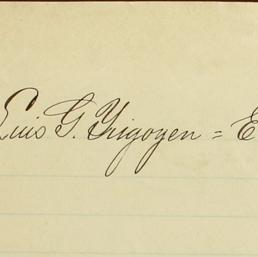 Luis G. Yrigoyen = E